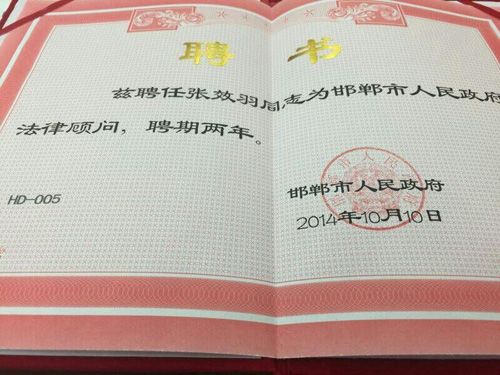 聘书
兹聘任张效羽同志为邯郸市人民政府
法律顾问，聘期两年。
HD-005
邯郸市人民政府
2014年10月10日